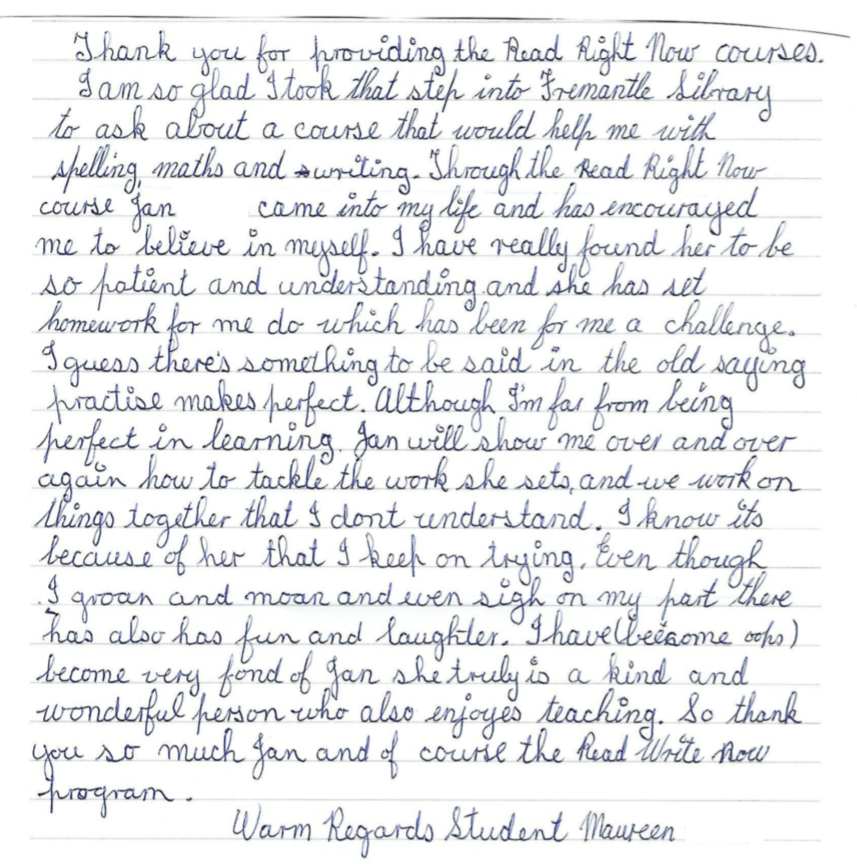 Thank you for providing the Read Right Now courses.
I am so glad I took that step into Fremantle Library
to ask about a course that would help me with
spelling, maths and writing. Through the Read Right Now
course Jan came into my life and has encouraged
me to believe in myself. I have really found her to be
so patient and understanding and she has set
homework for me do which has been for me a challenge.
I guess there's something to be said in the old saying
practise makes perfect. Although I'm far from being
perfect in learning. Jan will show me over and over
again how to tackle the work she sets, and we work on
things together that I dont understand. I know its
because of her that I keep on trying. Even though
I groan and moan and even sigh on my part there
has also has fun and laughter. I have (becsome oops)
become very fond of Jan she truly is a kind and
wonderful person who also enjoyes teaching. So thank
you so much Jan and of course the Read Write Now
program.
Warm Regards Student Maureen